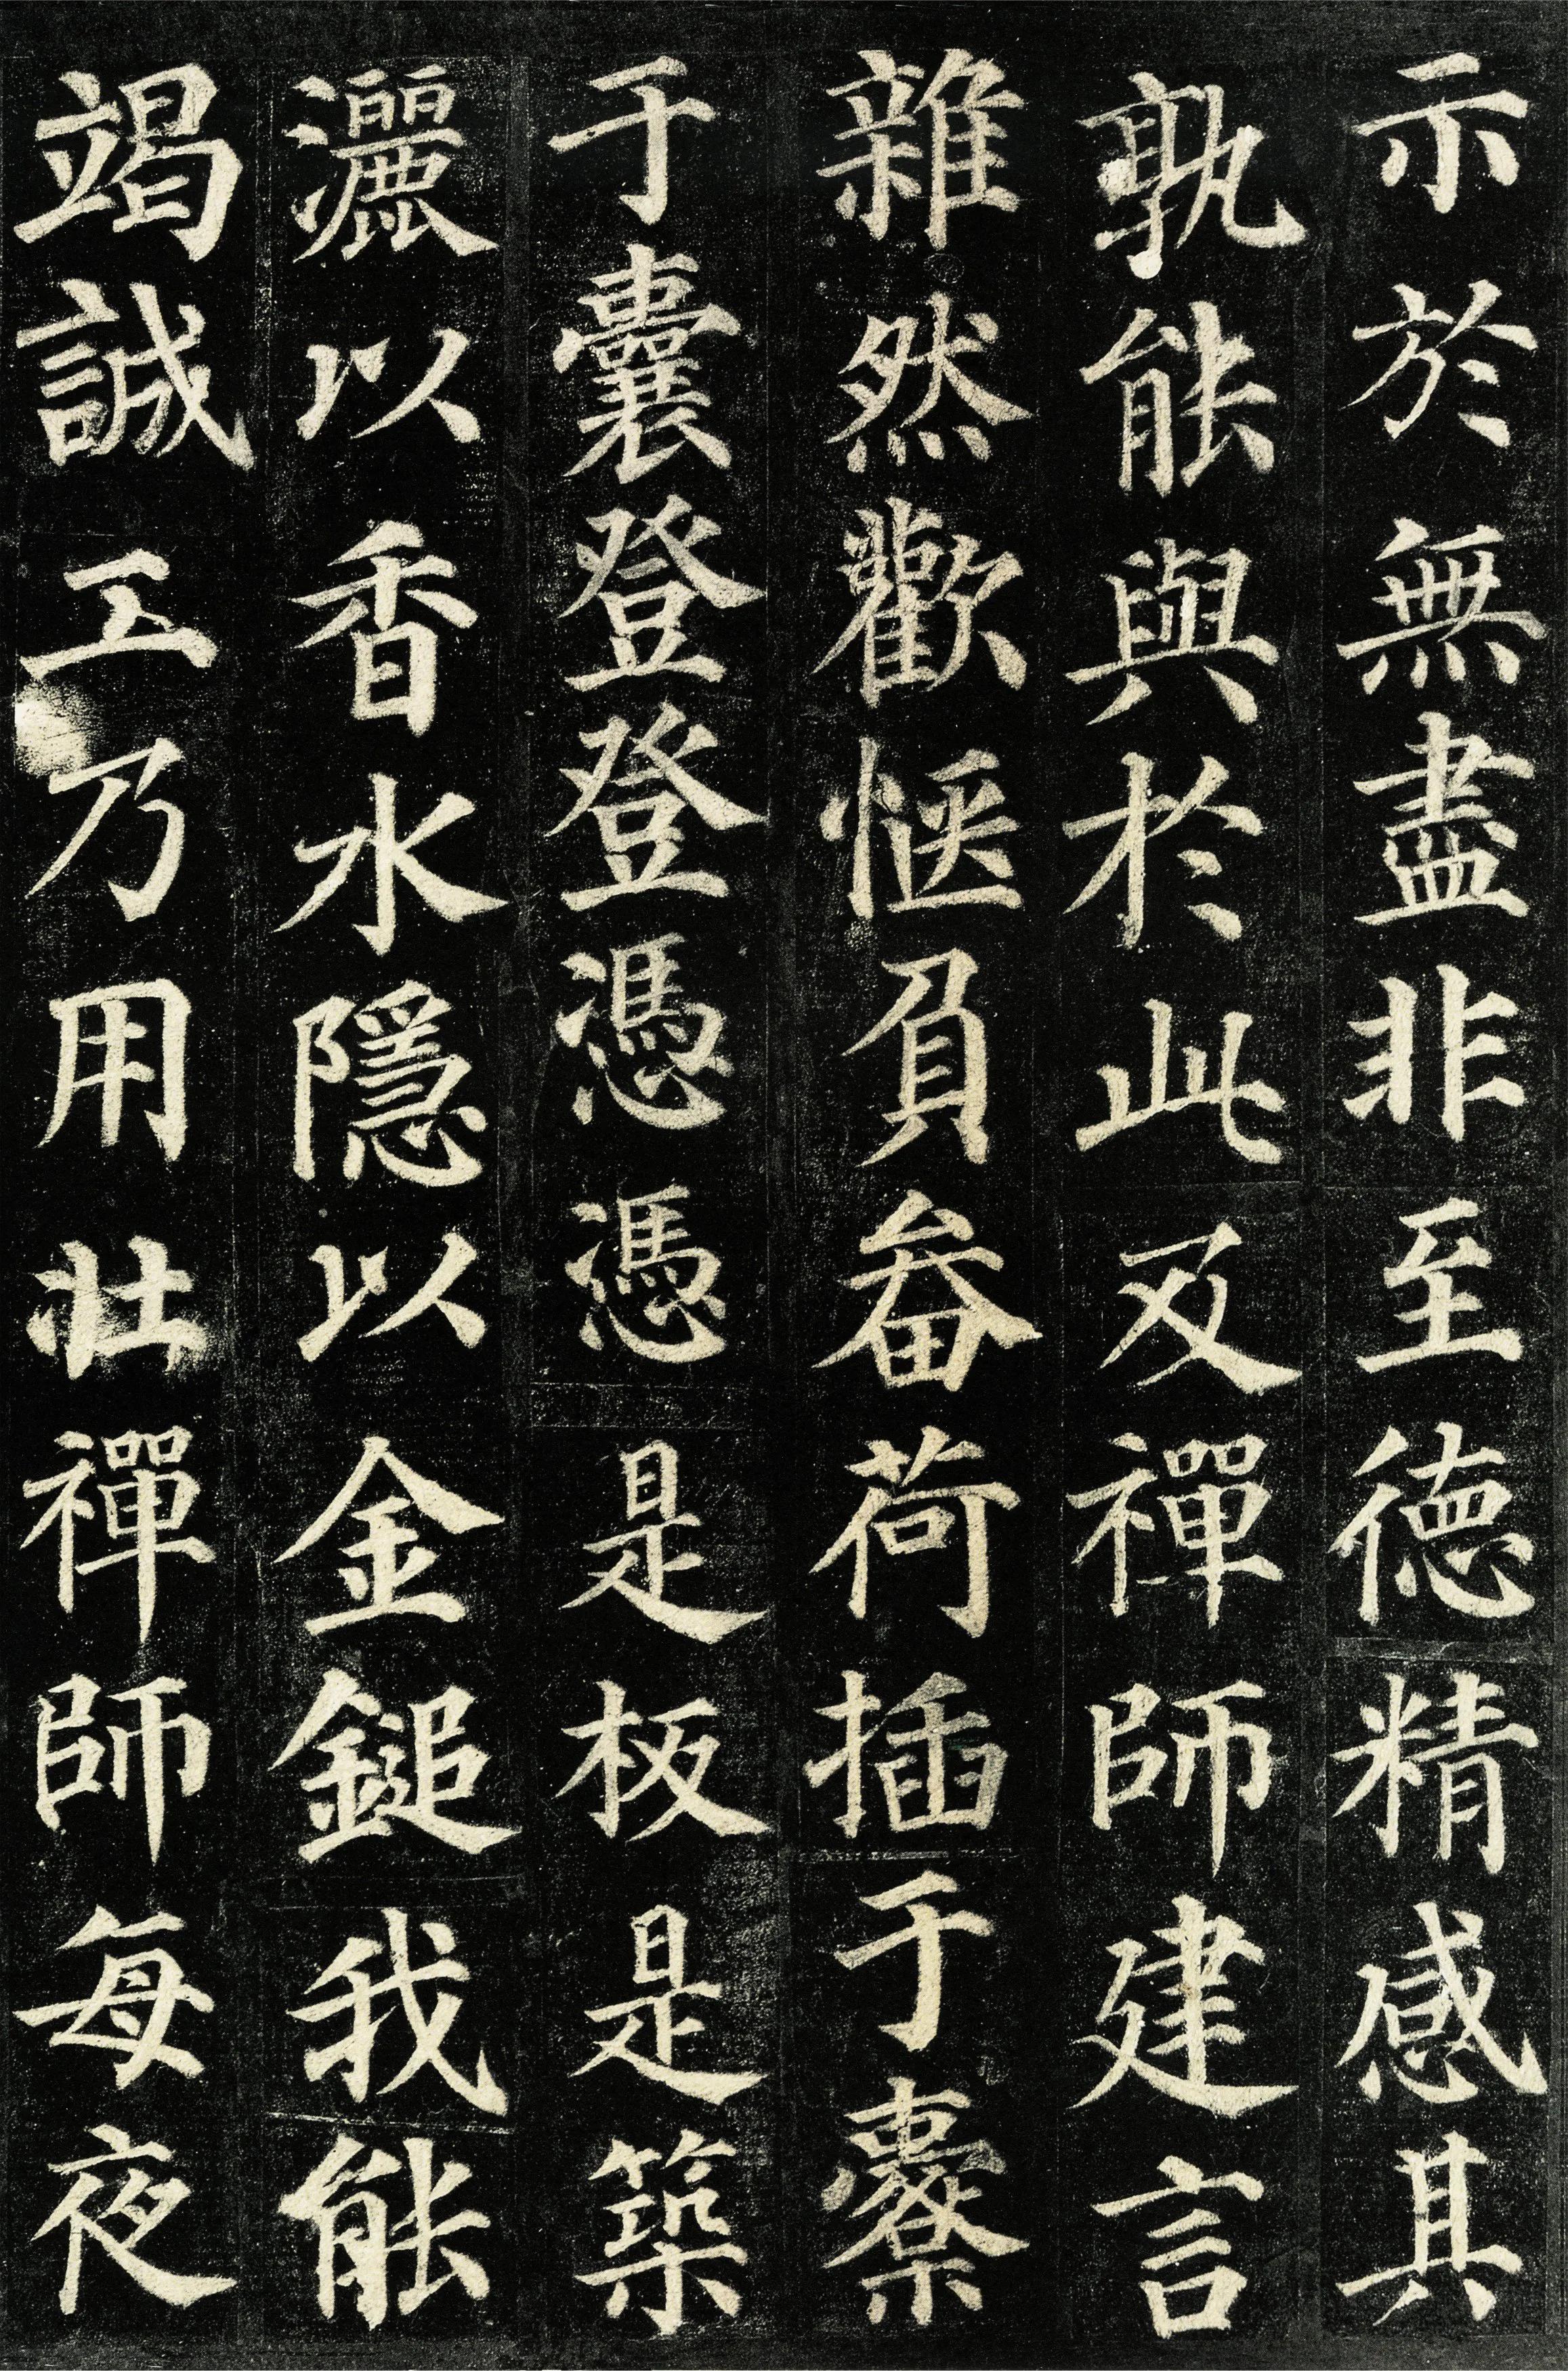 示於無盡非至德精感其
孰能與於此及禪師建言
雜然歡愜負畚荷插于橐
于囊登登憑憑是板是築
灑以香水隱以金鎚我能
竭誠工乃用壯禪師每夜